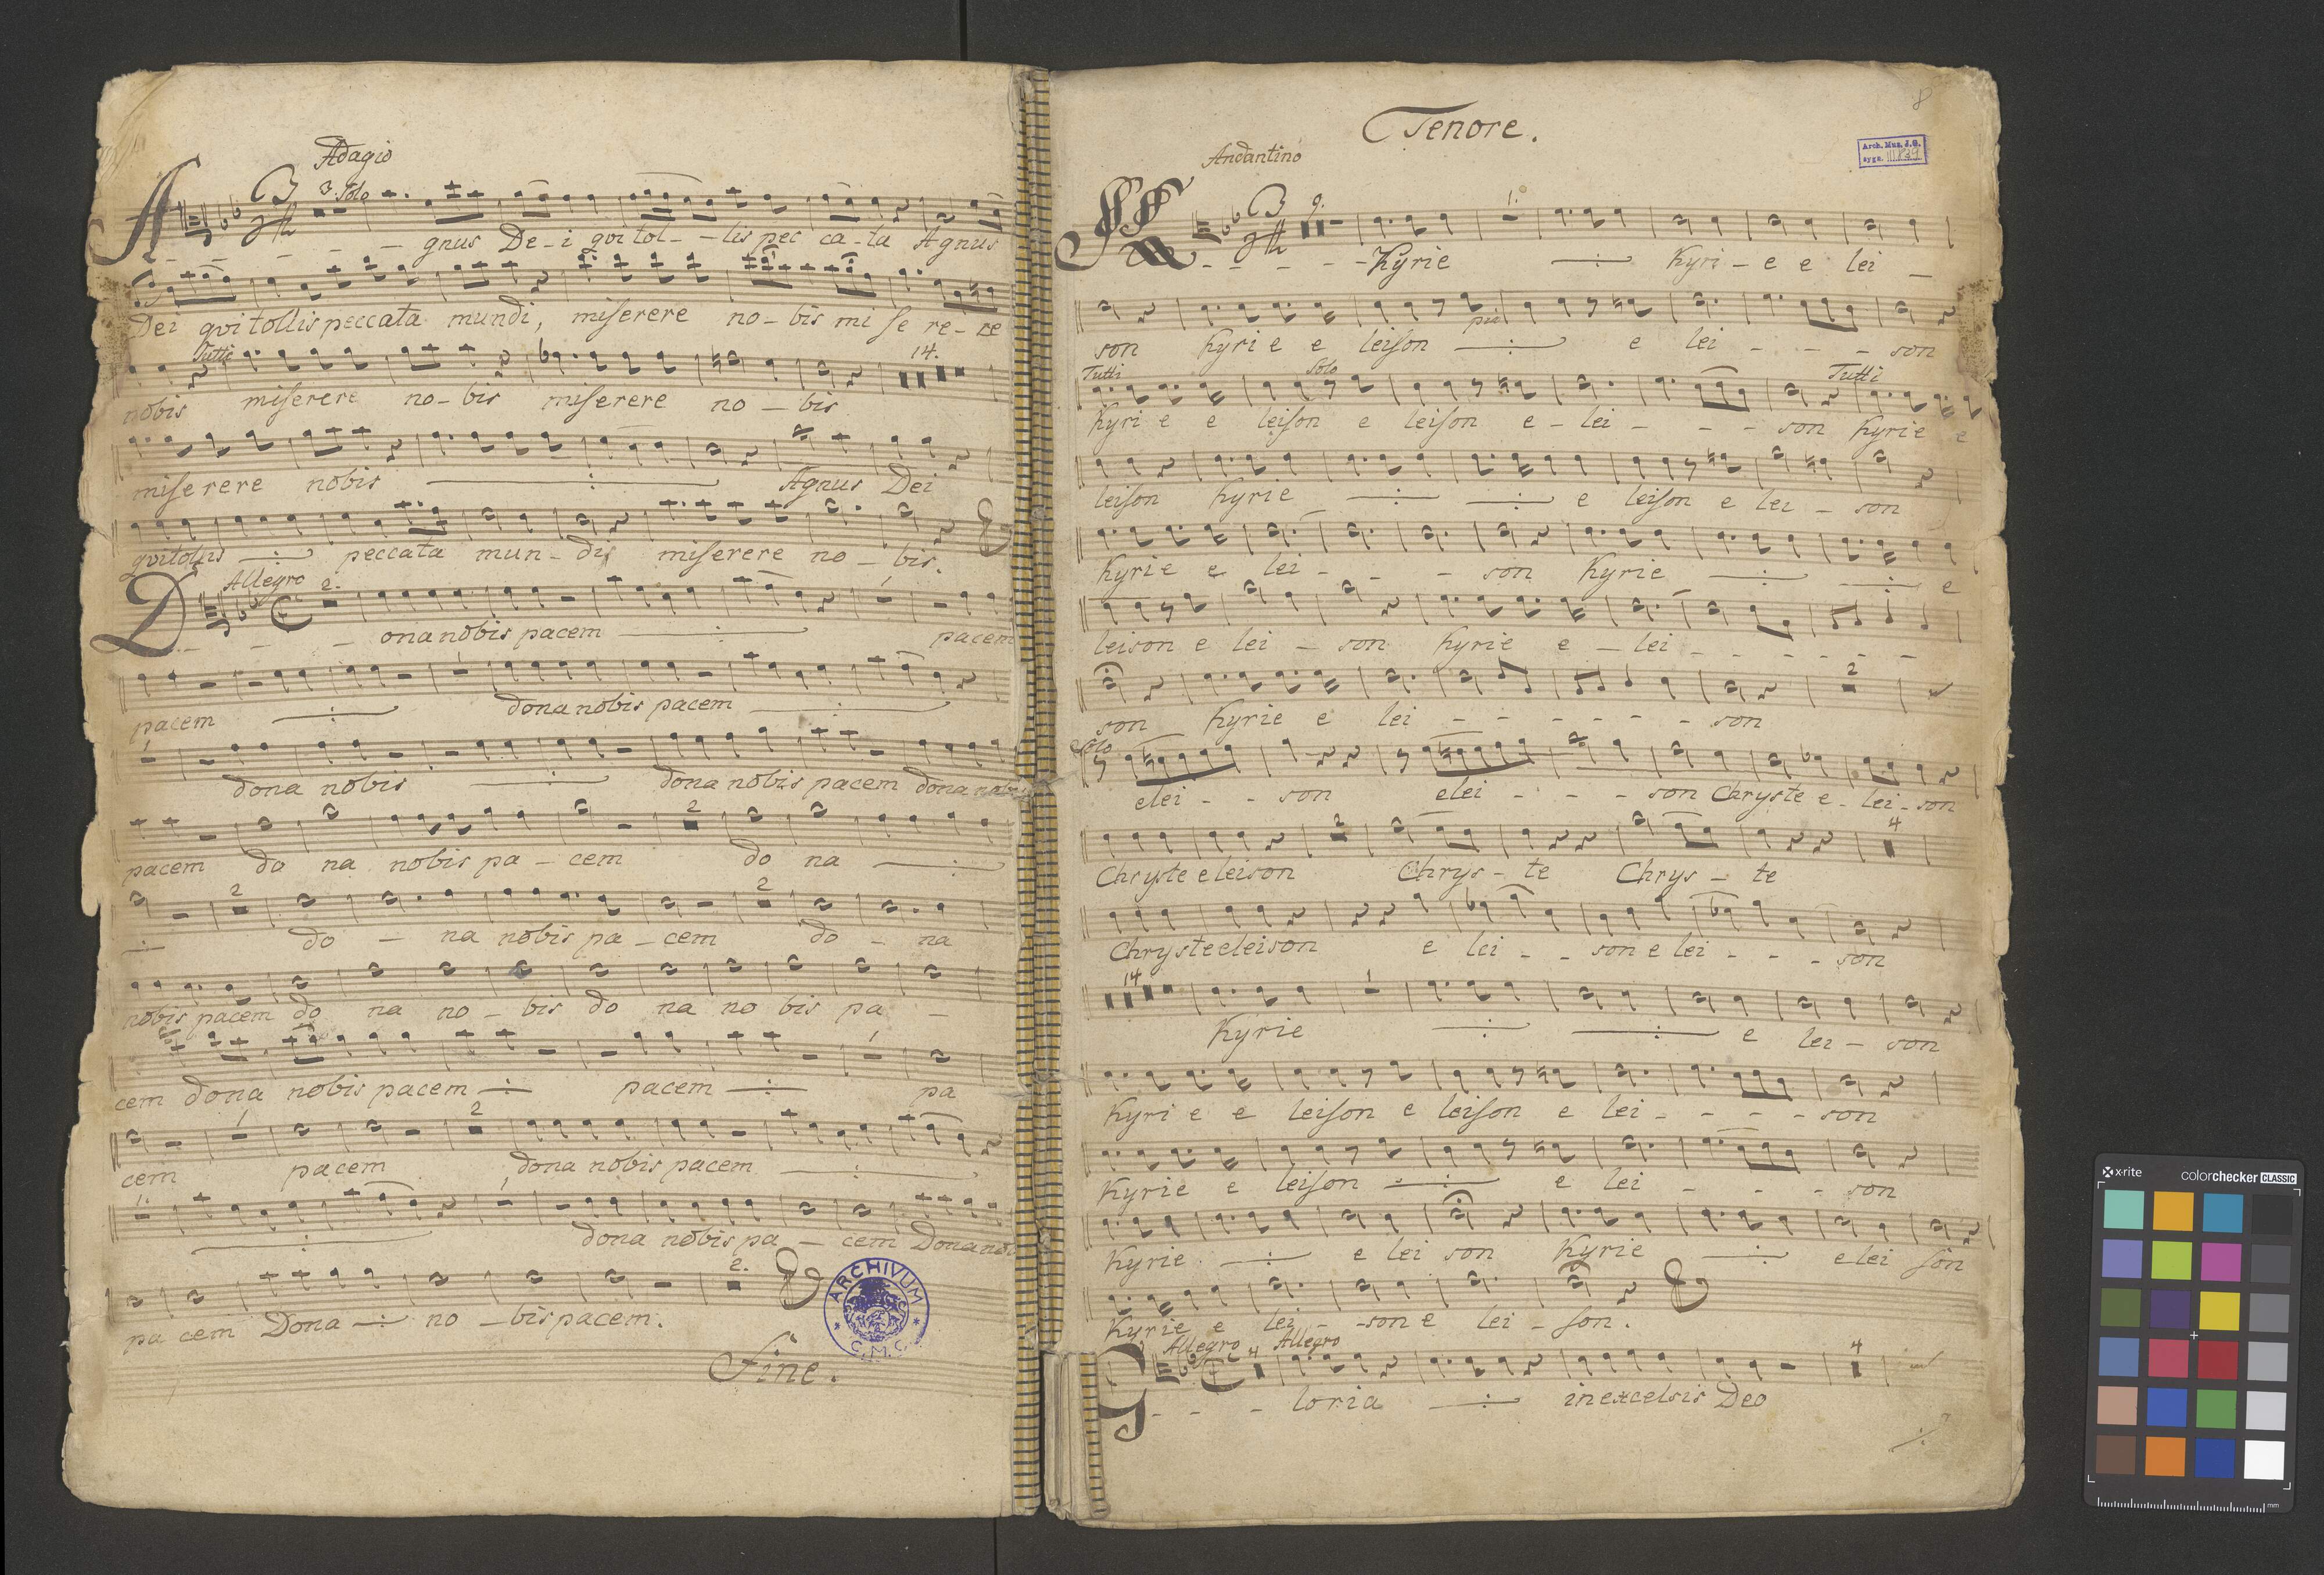 Adagio
3. Solo
A - - - gnus De-i qvi tol--lis pec ca-ta Agnus
Dei qvi tollis peccata mundi, miserere no-bis mi se re-re
Tutti 14.
nobis miserere no-bis miserere no-bis
miserere nobis Agnus Dei
qvitollis peccata mun-dis miserere no-bis.
Allegro 2.
D - - - ona nobis pacem pacem
1
pacem dona nobis pacem
1
dona nobis dona nobis pacem dona nobis
2
pacem do na nobis pa-cem do na
2 2
do - na nobis pa-cem do - na
nobis pacem do na no-bis do na no bis pa -
1
cem dona nobis pacem pacem pa
1 2
cem pacem dona nobis pacem
1. 1
dona nobis pa - cem Dona nobi
2.
pa cem Dona no-bis pacem.
Fine.
ARCHIVUM
C.M.C.
8
Tenore.
Arch. Muz. J.G.
sygn. III
Andantino
9. 1.
K - - - - - Kyrie Kyri-e e lei -
son Kyri e e leison e lei - - - son
Tutti Solo Tutti
Kyri e e leison e leison e-lei - - - son Kyrie e
leison Kyrie e leison e lei - son
Kyrie e lei - - - son Kyrie e
leison e lei - son Kyrie e - lei - - - - - -
2
son Kyrie e lei - - - - - - son
Solo
elei - - son elei - - - son Chryste e-lei-son
2 4
Chryste eleison Chrys-te Chrys-te
Chryste eleison e lei - - son e lei - - - son
14 1
Kyrie e lei - son
Kyri e e leison e leison e lei - - - - son
Kyrie e leison e lei - - - son
Kyrie e lei son Kyrie elei son
Kyrie e lei - -son e lei - son.
Allegro 4 Allegro 4
G - - - loria in excelsis Deo
x-rite colorchecker CLASSIC
mm